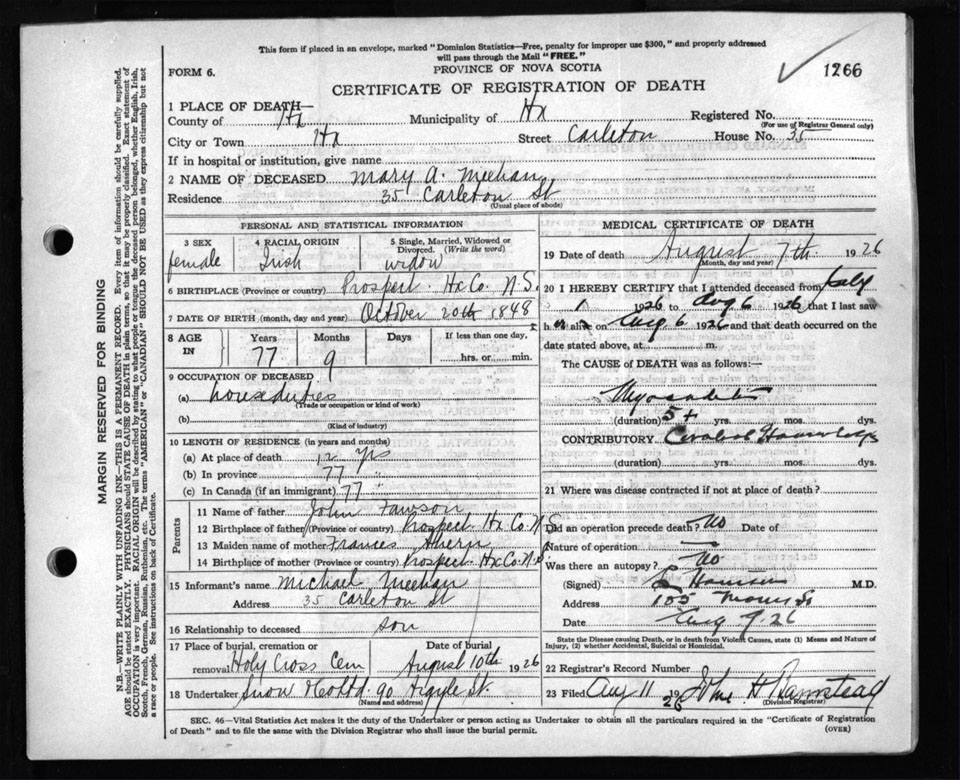 This form if placed in an envelope, marked "Dominion Statistics—Free, penalty for improper use $300," and properly addressed
will pass through the Mail "FREE."
1266
FORM 6.
PROVINCE OF NOVA SCOTIA
CERTIFICATE OF REGISTRATION OF DEATH
1 PLACE OF DEATH—
County of Hx Municipality of Hx Registered No.
(For use of Registrar General only)
City or Town Hx Street Carleton House No. 35
If in hospital or institution, give name
2 NAME OF DECEASED Mary A. Meehan
Residence 35 Carleton St
(Usual place of abode)
PERSONAL AND STATISTICAL INFORMATION
3 SEX 4 RACIAL ORIGIN 5 Single, Married, Widowed or
Divorced. (Write the word)
female Irish widow
6 BIRTHPLACE (Province or country) Prospect Hx Co. N.S.
7 DATE OF BIRTH (month, day and year) October 20th 1848
8 AGE IN Years Months Days If less than one day,
77 9 hrs. or min.
9 OCCUPATION OF DECEASED
(a) houseduties
(Trade or occupation or kind of work)
(b)
(Kind of industry)
10 LENGTH OF RESIDENCE (in years and months)
(a) At place of death 12 yrs
(b) In province 77 "
(c) In Canada (if an immigrant) 77 "
Parents
11 Name of father John Fawson
12 Birthplace of father (Province or country) Prospect Hx Co. N.S
13 Maiden name of mother Frances Ahern
14 Birthplace of mother (Province or country) Prospect Hx Co. N.S
15 Informant's name Michael Meehan
Address 35 Carleton St
16 Relationship to deceased son
17 Place of burial, cremation or Date of burial
removal Holy Cross Cem August 10th 1926
18 Undertaker Snow & Co Ltd. 90 Argyle St.
(Name and address)
MEDICAL CERTIFICATE OF DEATH
19 Date of death August 7th 1926
(Month, day and year)
20 I HEREBY CERTIFY that I attended deceased from July
1 1926 to Aug 6 1926 that I last saw
her alive on Aug 6 1926 and that death occurred on
date stated above, at m.
The CAUSE OF DEATH was as follows:—
Myocarditis
(duration) 5+ yrs. mos. dys.
CONTRIBUTORY Cerebral Hemorrhage
(duration) yrs. mos. dys.
21 Where was disease contracted if not at place of death?
Did an operation precede death? No Date of
Nature of operation —
Was there an autopsy? No
(Signed) M.D.
Address 105 Morris St
Date Aug 9. 26
State the Disease causing Death, or in death from Violent Causes, state (1) Means and Nature of
Injury, (2) whether Accidental, Suicidal or Homicidal.
22 Registrar's Record Number
23 Filed Aug 11 1926 John H Barnstead
(Division Registrar)
SEC. 46—Vital Statistics Act makes it the duty of the Undertaker or person acting as Undertaker to obtain all the particulars required in the "Certificate of Registration
of Death" and to file the same with the Division Registrar who shall issue the burial permit.
(OVER)
MARGIN RESERVED FOR BINDING
N.B.—WRITE PLAINLY WITH UNFADING INK—THIS IS A PERMANENT RECORD. Every item of information should be carefully supplied.
AGE should be stated EXACTLY. PHYSICIANS should STATE CAUSE OF DEATH in plain terms, so that it may be properly classified. Exact statement of
OCCUPATION is very important. RACIAL ORIGIN will be described by stating to what people or tongue the deceased person belonged, whether English, Irish,
Scotch, French, German, Russian, Ruthenian, etc. The terms "AMERICAN" or "CANADIAN" SHOULD NOT BE USED as they express citizenship but not
a race or people. See instructions on back of Certificate.